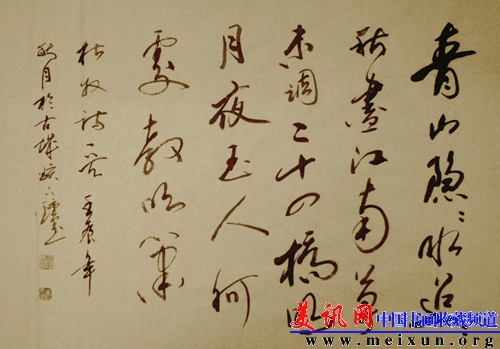 青山隐〻水迢〻
秋盡江南草
未調二十四橋明
月夜玉人何
處教吹簫
杜牧诗一首 壬辰年
秋月於古城
美讯网 中国书画收藏频道
www.meixun.org